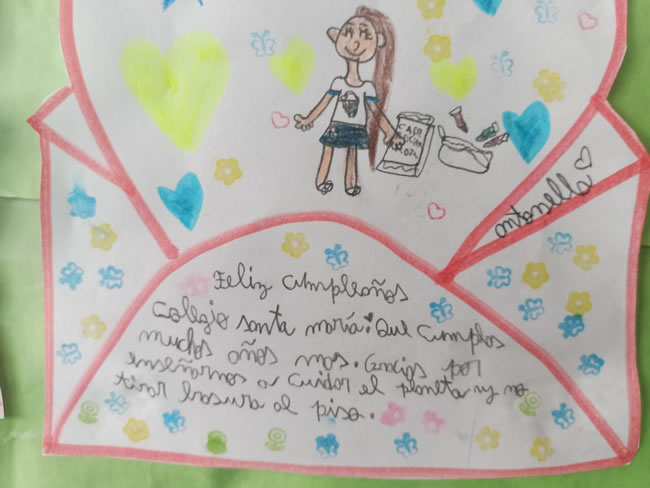 antonella
Feliz cumpleaños
colegio santa maría. Que cumplas
muchos años mas. Gracias por
enseñarnos a cuidar el planeta y no
tirar basura al piso.